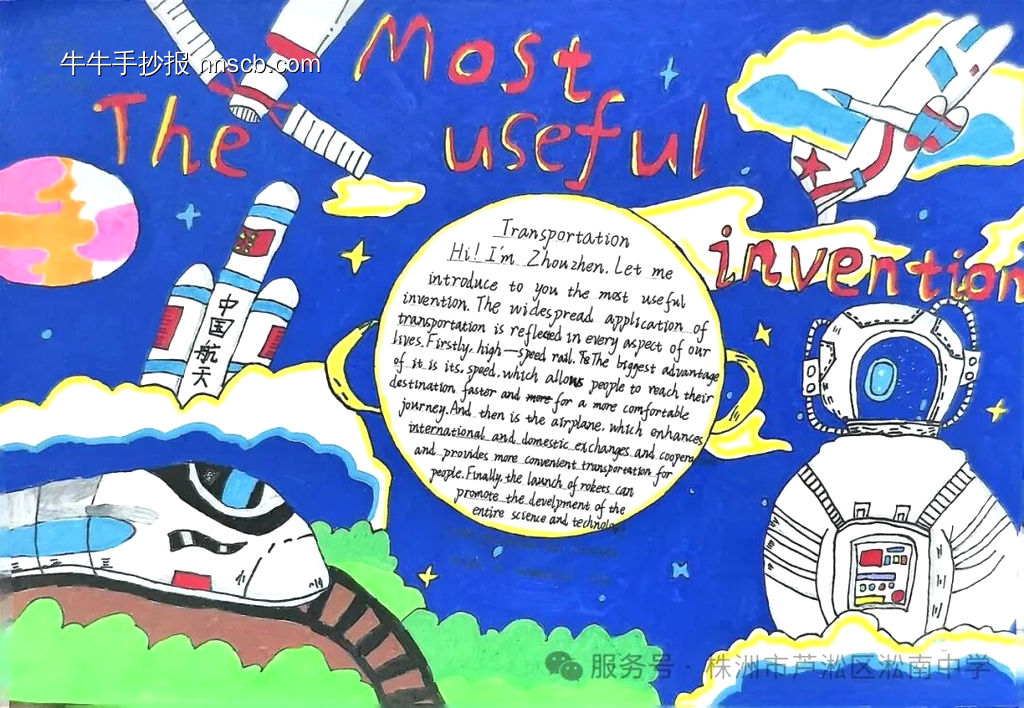 牛牛手抄报 nnscb.com
The Most useful invention
中国航天
Transportation
Hi! I'm Zhouzhen. Let me
introduce to you the most useful
invention. The widespread application of
transportation is reflected in every aspect of our
lives. Firstly, high-speed rail. The biggest advantage
of it is its speed, which allows people to reach their
destination faster and for a more comfortable
journey. And then is the airplane, which enhances
international and domestic exchanges and coopera
and provides more convenient transportation for
people. Finally, the launch of rokets can
promote the develpment of the
entire science and technology
服务号 · 株洲市芦淞区淞南中学